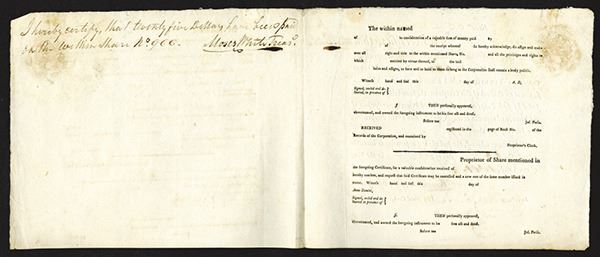 I hereby certify, that twenty five Dollars have been paid
on the within Share No. 900. Moses White Treasr.
The within named
of in consideration of a valuable sum of money paid by
of the receipt whereof do hereby acknowledge, do assign and make
over all right and title in the within mentioned Share, No. and all the privileges and rights to
which entitled by virtue thereof, to the said
heirs and assigns, to have and to hold to them so long as the Corporation shall remain a body politic.
Witness hand and seal this day of A. D.
Signed, sealed and de-
livered, in presence of
THEN personally appeared,
abovenamed, and owned the foregoing instrument to be free act and deed.
Before me Jus. Pacis.
RECEIVED registered in the page of Book No. of the
Records of the Corporation, and examined by
Proprietor's Clerk.
Proprietor of Share mentioned in
the foregoing Certificate, for a valuable consideration received of
hereby transfer, and request that said Certificate may be cancelled and a new one of the same number issued in
name. Witness hand and seal this day of
Anno Domini,
Signed, sealed and de-
livered, in presence of
THEN personally appeared,
abovenamed, and owned the foregoing instrument to be free act and deed.
Before me Jus. Pacis.